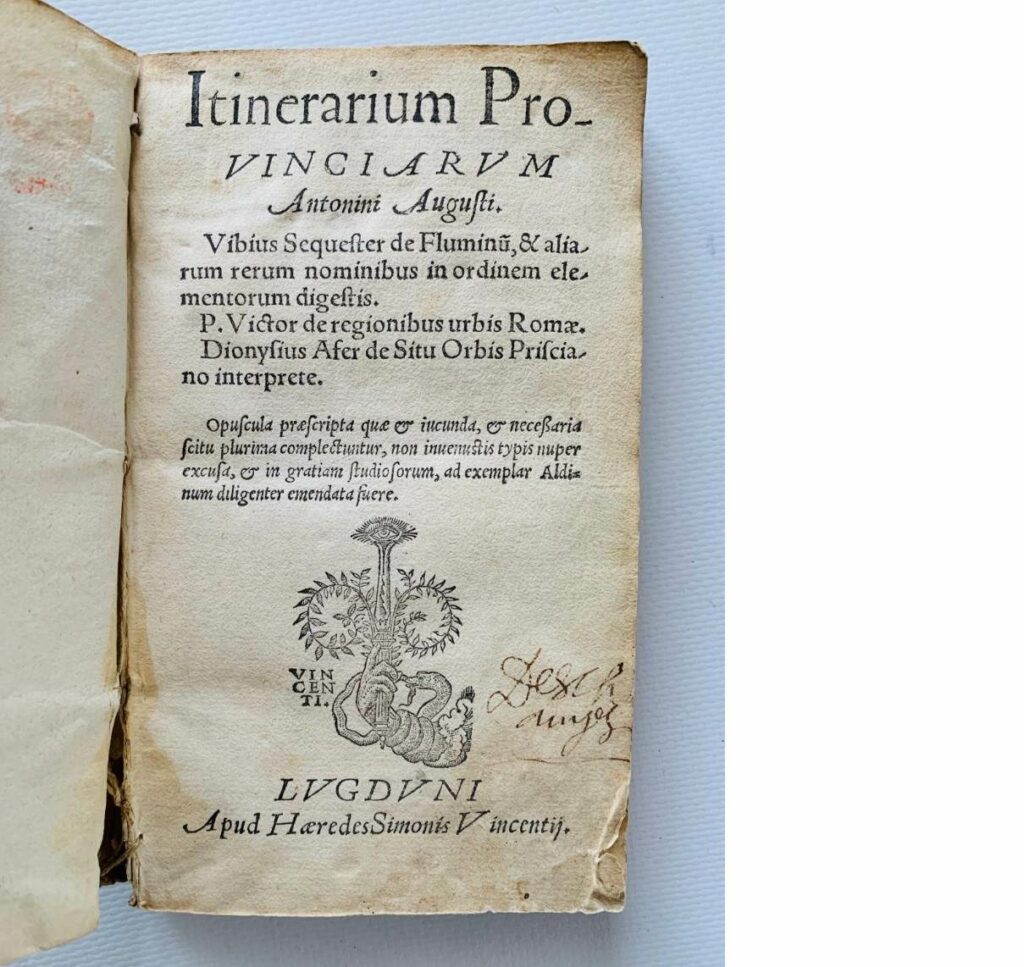 Itinerarium Pro-
VINCIARVM
Antonini Augusti.
Vibius Sequester de Fluminū, & alia-
rum rerum nominibus in ordinem ele-
mentorum digestis.
P. Victor de regionibus urbis Romæ.
Dionysius Afer de Situ Orbis Priscia-
no interprete.
Opuscula præscripta quæ & iucunda, & necessaria
scitu plurima complectuntur, non inuenustis typis nuper
excusa, & in gratiam studiosorum, ad exemplar Aldi-
num diligenter emendata fuere.
VIN
CEN
TI.
LVGDVNI
Apud Hæredes Simonis Vincentij.